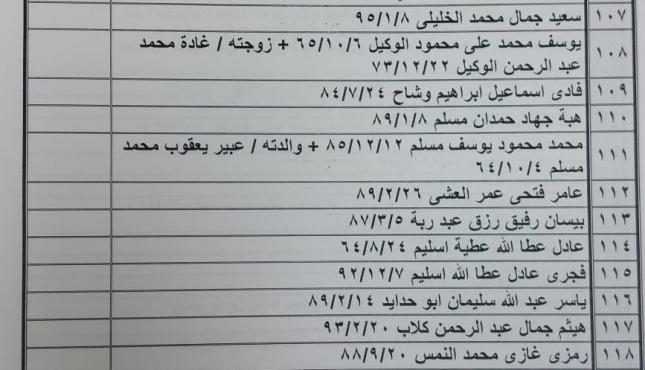 ١٠٧ سعيد جمال محمد الخليلى ٩٥/١/٨
١٠٨ يوسف محمد على محمود الوكيل ٦٥/١٠/٦ + زوجته / غادة محمد
عبد الرحمن الوكيل ٧٣/١٢/٢٢
١٠٩ فادى اسماعيل ابراهيم وشاح ٨٤/٧/٢٤
١١٠ هبة جهاد حمدان مسلم ٨٩/١/٨
١١١ محمد محمود يوسف مسلم ٨٥/١٢/١٢ + والدته / عبير يعقوب محمد
مسلم ٦٤/١٠/٤
١١٢ عامر فتحى عمر العشى ٨٩/٢/٢٦
١١٣ بيسان رفيق رزق عبد ربة ٨٧/٣/٥
١١٤ عادل عطا الله عطية اسليم ٦٤/٨/٢٤
١١٥ فجرى عادل عطا الله اسليم ٩٢/١٢/٧
١١٦ ياسر عبد الله سليمان ابو حدايد ٨٩/٢/١٤
١١٧ هيثم جمال عبد الرحمن كلاب ٩٣/٢/٢٠
١١٨ رمزى غازى محمد النمس ٨٨/٩/٢٠